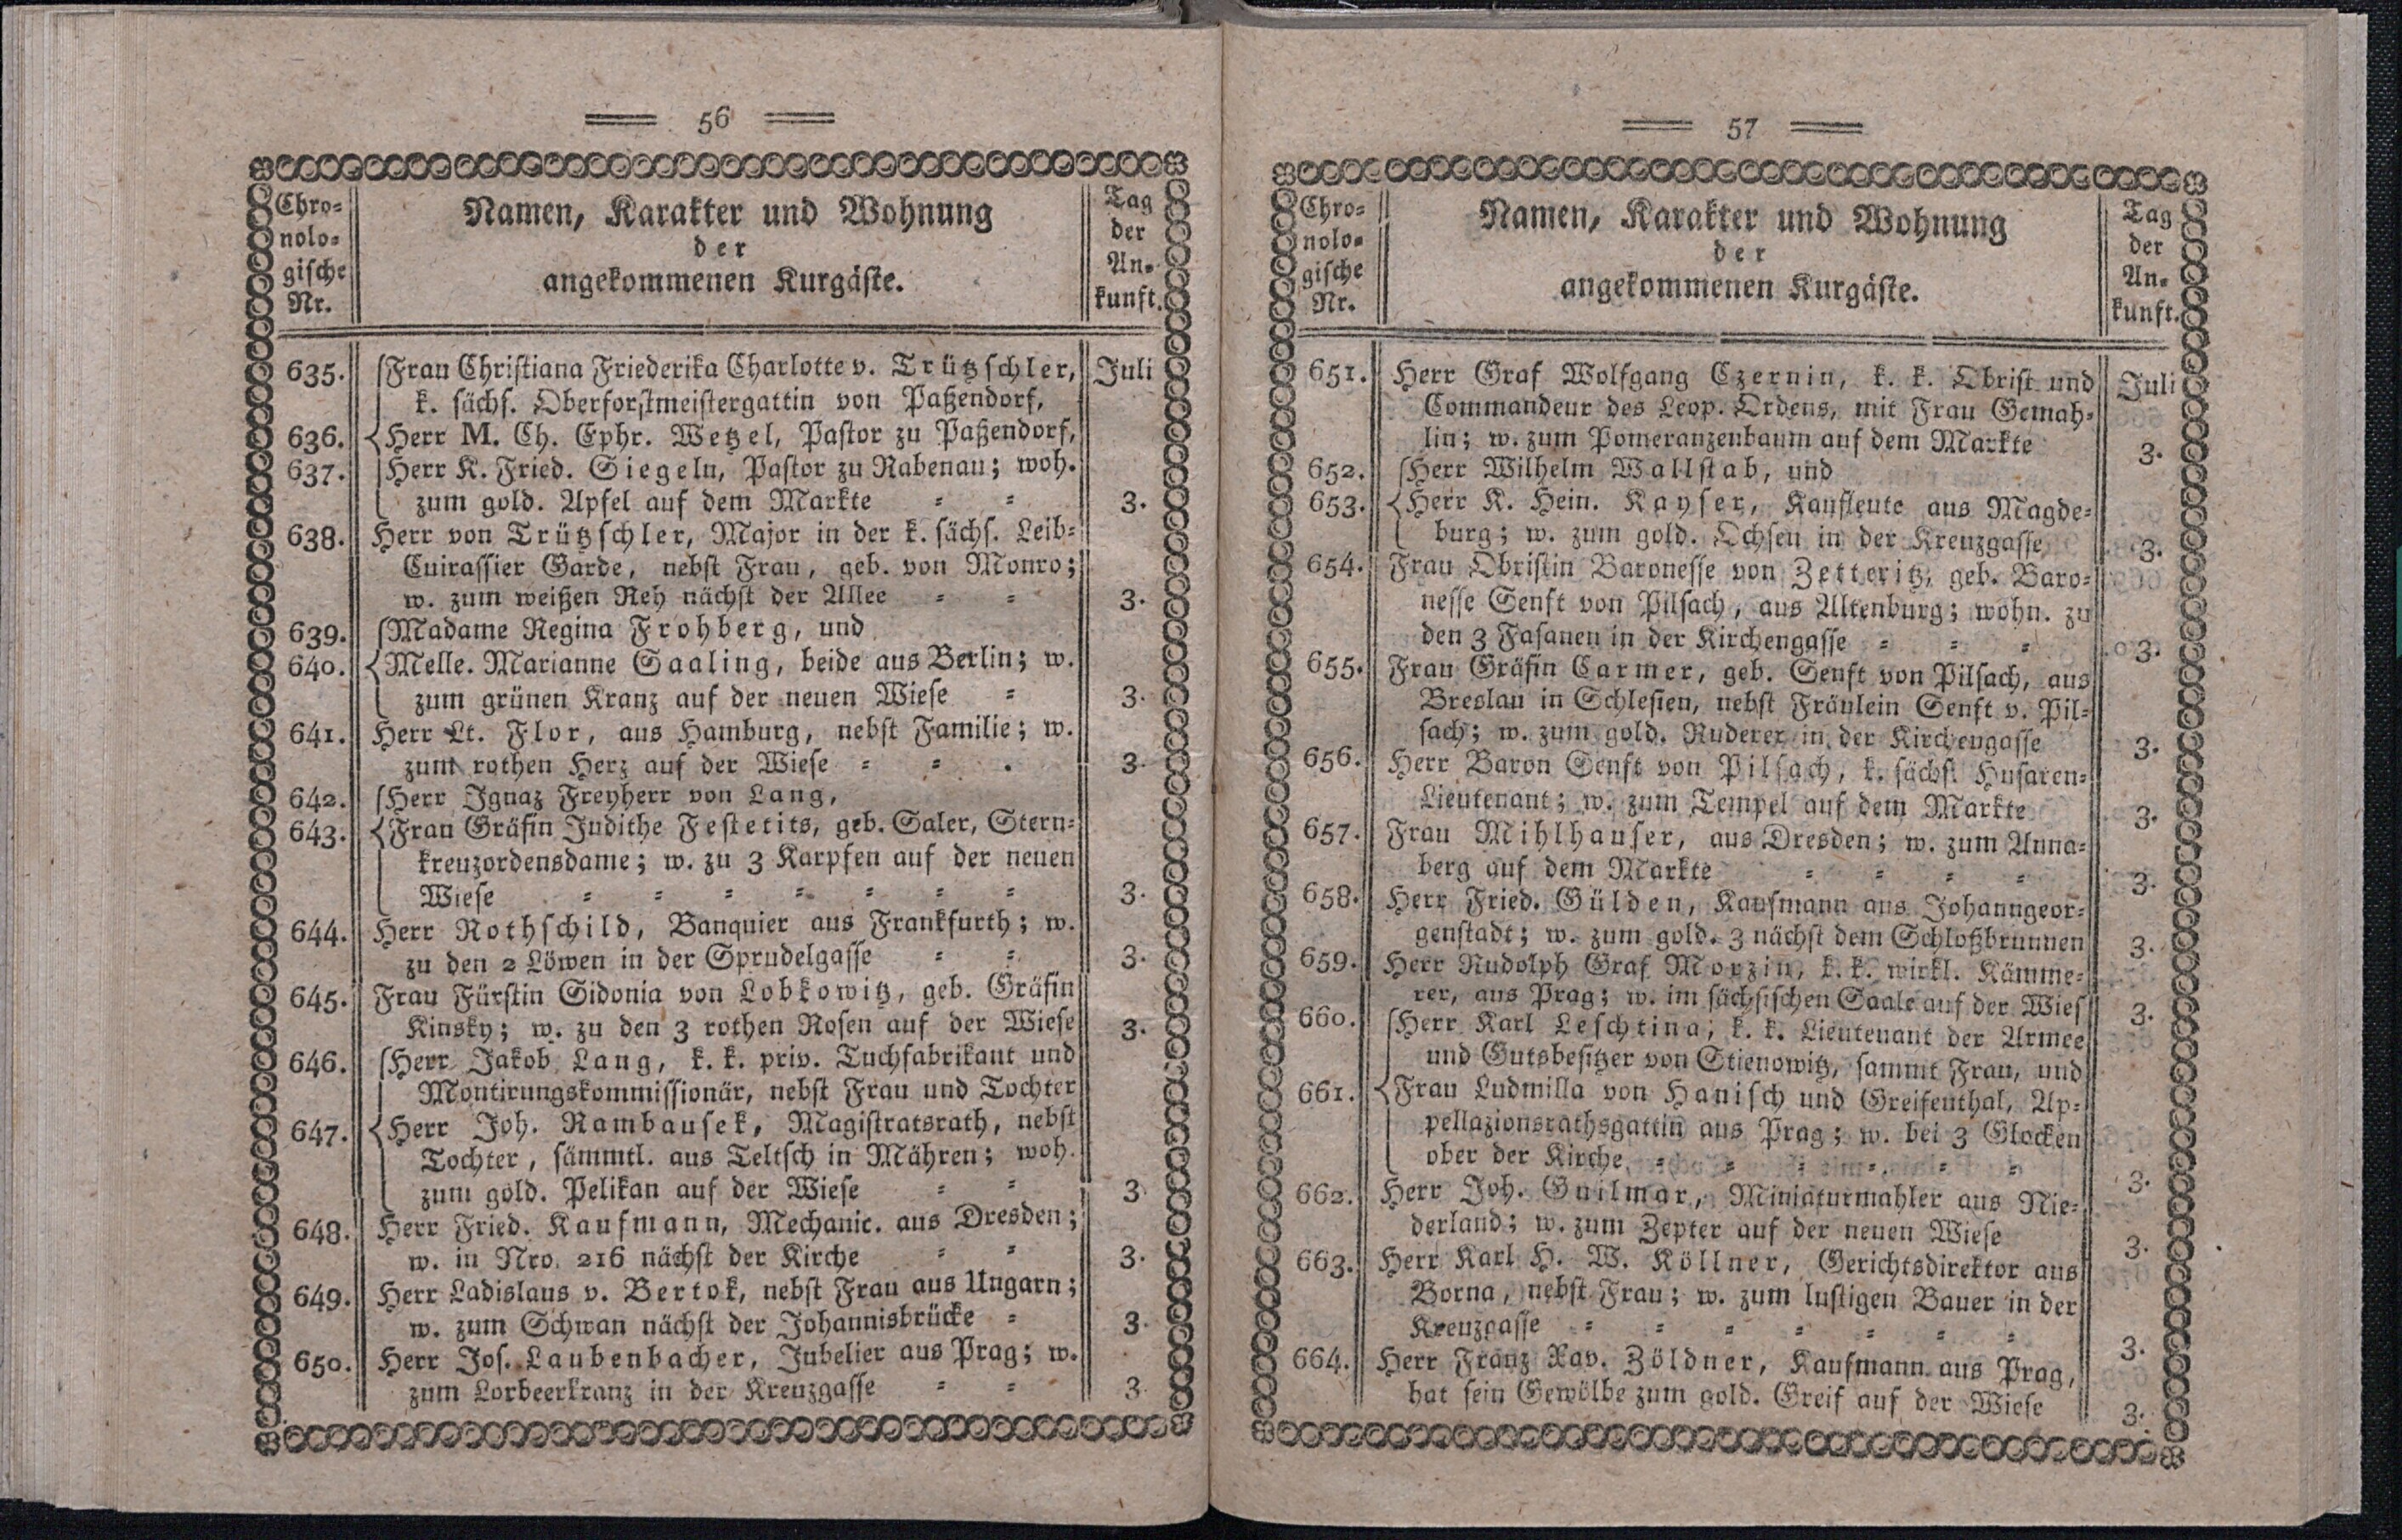 56
Chro-
nolo-
gische
Nr.
Namen, Karakter und Wohnung
der
angekommenen Kurgäste.
Tag
der
An-
kunft.
635. Frau Christiana Friederika Charlotte v. Trützschler, Juli
k. sächs. Oberforstmeistergattin von Patzendorf,
636. Herr M. Ch. Ephr. Wetzel, Pastor zu Patzendorf,
637. Herr K. Fried. Siegeln, Pastor zu Rabenau; woh.
zum gold. Apfel auf dem Markte = = 3.
638. Herr von Trützschler, Major in der k. sächs. Leib-
Cuirassier Garde, nebst Frau, geb. von Monro;
w. zum weißen Reh nächst der Allee = = 3.
639. Madame Regina Frohberg, und
640. Melle. Marianne Saaling, beide aus Berlin; w.
zum grünen Kranz auf der neuen Wiese = 3.
641. Herr Lt. Flor, aus Hamburg, nebst Familie; w.
zum rothen Herz auf der Wiese = = . 3.
642. Herr Ignaz Freyherr von Lang,
643. Frau Gräfin Judithe Festetits, geb. Saler, Stern-
kreuzordensdame; w. zu 3 Karpfen auf der neuen
Wiese = = = = = = = 3.
644. Herr Rothschild, Banquier aus Frankfurth; w.
zu den 2 Löwen in der Sprudelgasse = = 3.
645. Frau Fürstin Sidonia von Lobkowitz, geb. Gräfin
Kinsky; w. zu den 3 rothen Rosen auf der Wiese 3.
646. Herr Jakob Lang, k. k. priv. Tuchfabrikant und
Montirungskommissionär, nebst Frau und Tochter
647. Herr Joh. Rambausek, Magistratsrath, nebst
Tochter, sämmtl. aus Teltsch in Mähren; woh.
zum gold. Pelikan auf der Wiese = = 3
648. Herr Fried. Kaufmann, Mechanic. aus Dresden;
w. in Nro. 216 nächst der Kirche = = 3.
649. Herr Ladislaus v. Bertok, nebst Frau aus Ungarn;
w. zum Schwan nächst der Johannisbrücke = 3.
650. Herr Jos. Laubenbacher, Jubelier aus Prag; w.
zum Lorbeerkranz in der Kreuzgasse = = 3.
57
Chro-
nolo-
gische
Nr.
Namen, Karakter und Wohnung
der
angekommenen Kurgäste.
Tag
der
An-
kunft.
651. Herr Graf Wolfgang Czernin, k. k. Obrist und Juli
Commandeur des Leop. Ordens, mit Frau Gemah-
lin; w. zum Pomeranzenbaum auf dem Markte 3.
652. Herr Wilhelm Wallstab, und
653. Herr K. Hein. Kayser, Kaufleute aus Magde-
burg; w. zum gold. Ochsen in der Kreuzgasse 3.
654. Frau Obristin Baronesse von Zetteritz, geb. Baro-
nesse Senft von Pilsach, aus Altenburg; wohn. zu
den 3 Fasanen in der Kirchengasse = = = 3.
655. Frau Gräfin Carmer, geb. Senft von Pilsach, aus
Breslau in Schlesien, nebst Fräulein Senft v. Pil-
sach; w. zum gold. Ruderer in der Kirchengasse 3.
656. Herr Baron Senft von Pilsach, k. sächs. Husaren-
Lieutenant; w. zum Tempel auf dem Markte 3.
657. Frau Mihlhauser, aus Dresden; w. zum Anna-
berg auf dem Markte = = = = 3.
658. Herr Fried. Gülden, Kaufmann aus Johanngeor-
genstadt; w. zum gold. 3 nächst dem Schloßbrunnen 3.
659. Herr Rudolph Graf Morzin, k. k. wirkl. Kämme-
rer, aus Prag; w. im sächsischen Saale auf der Wies 3.
660. Herr Karl Leschtina, k. k. Lieutenant der Armee
und Gutsbesitzer von Stienowitz, sammt Frau, und
661. Frau Ludmilla von Hanisch und Greifenthal, Ap-
pellazionsrathsgattin aus Prag; w. bei 3 Glocken
ober der Kirche = = = = = = 3.
662. Herr Joh. Guilmar, Miniaturmahler aus Nie-
derland; w. zum Zepter auf der neuen Wiese 3.
663. Herr Karl H. W. Köllner, Gerichtsdirektor aus
Borna, nebst Frau; w. zum lustigen Bauer in der
Kreuzgasse = = = = = = = 3.
664. Herr Franz Xav. Zöldner, Kaufmann aus Prag,
hat sein Gewölbe zum gold. Greif auf der Wiese 3.